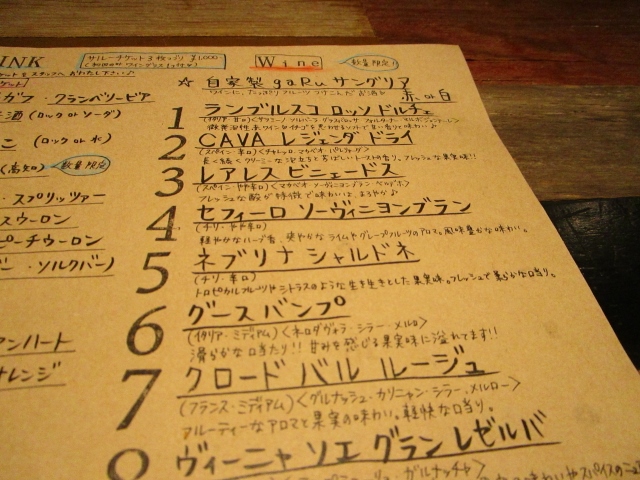 INK
サルーチケット3枚つづり ¥1,000
Wine
数量限定!
☆ 自家製 gaRu サングリア
ワインに、たっぷりフルーツつけこんだお酒♪
赤 or 白
ガフ・クランベリービア
酒 (ロック or ソーダ)
こ (ロック or 水)
(高知) 数量限定
・スプリッツァー
スウーロン
ピーチウーロン
ー・ソルクバーノ
アンハート
オレンジ
1 ランブルスコ ロッソ ドルチェ
微発泡性赤ワイン
2 CAVA レジェンダ ドライ
(スペイン・辛口)
フレッシュな果実味!!
3 レアレス ビニェードス
(スペイン・やや辛口)
フレッシュな酸が特徴で味わいは、まろやか♪
4 セフィーロ ソーヴィニヨンブラン
(チリ・やや辛口)
軽やかなハーブ香、爽やかなライムやグレープフルーツのアロマ。風味豊かな味わい。
5 ネブリナ シャルドネ
(チリ・辛口)
トロピカルフルーツやシトラスのような生き生きとした果実味。フレッシュで柔らかな口当り。
6 グース バンプ
(イタリア・ミディアム) <ネロダヴォラ・シラー・メルロ>
滑らかな口当たり!! 甘みを感じる果実味に溢れてます!!
7 クロード バル ルージュ
(フランス・ミディアム) <グルナッシュ・カリニャン・シラー・メルロー>
フルーティーなアロマと果実の味わい。軽快な口当り。
8 ヴィーニャ ソエ グラン レゼルバ